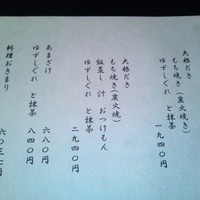 大根だき
もち焼き(炭火焼)
ゆずしぐれ と抹茶
一九四〇円
大根だき
もち焼き(炭火焼)
飯蒸し 汁 おつけもん
ゆずしぐれ と抹茶
二九四〇円
あまざけ 八四〇円
ゆずしぐれ と抹茶 八〇〇円
料理おきまり 六〇三七円